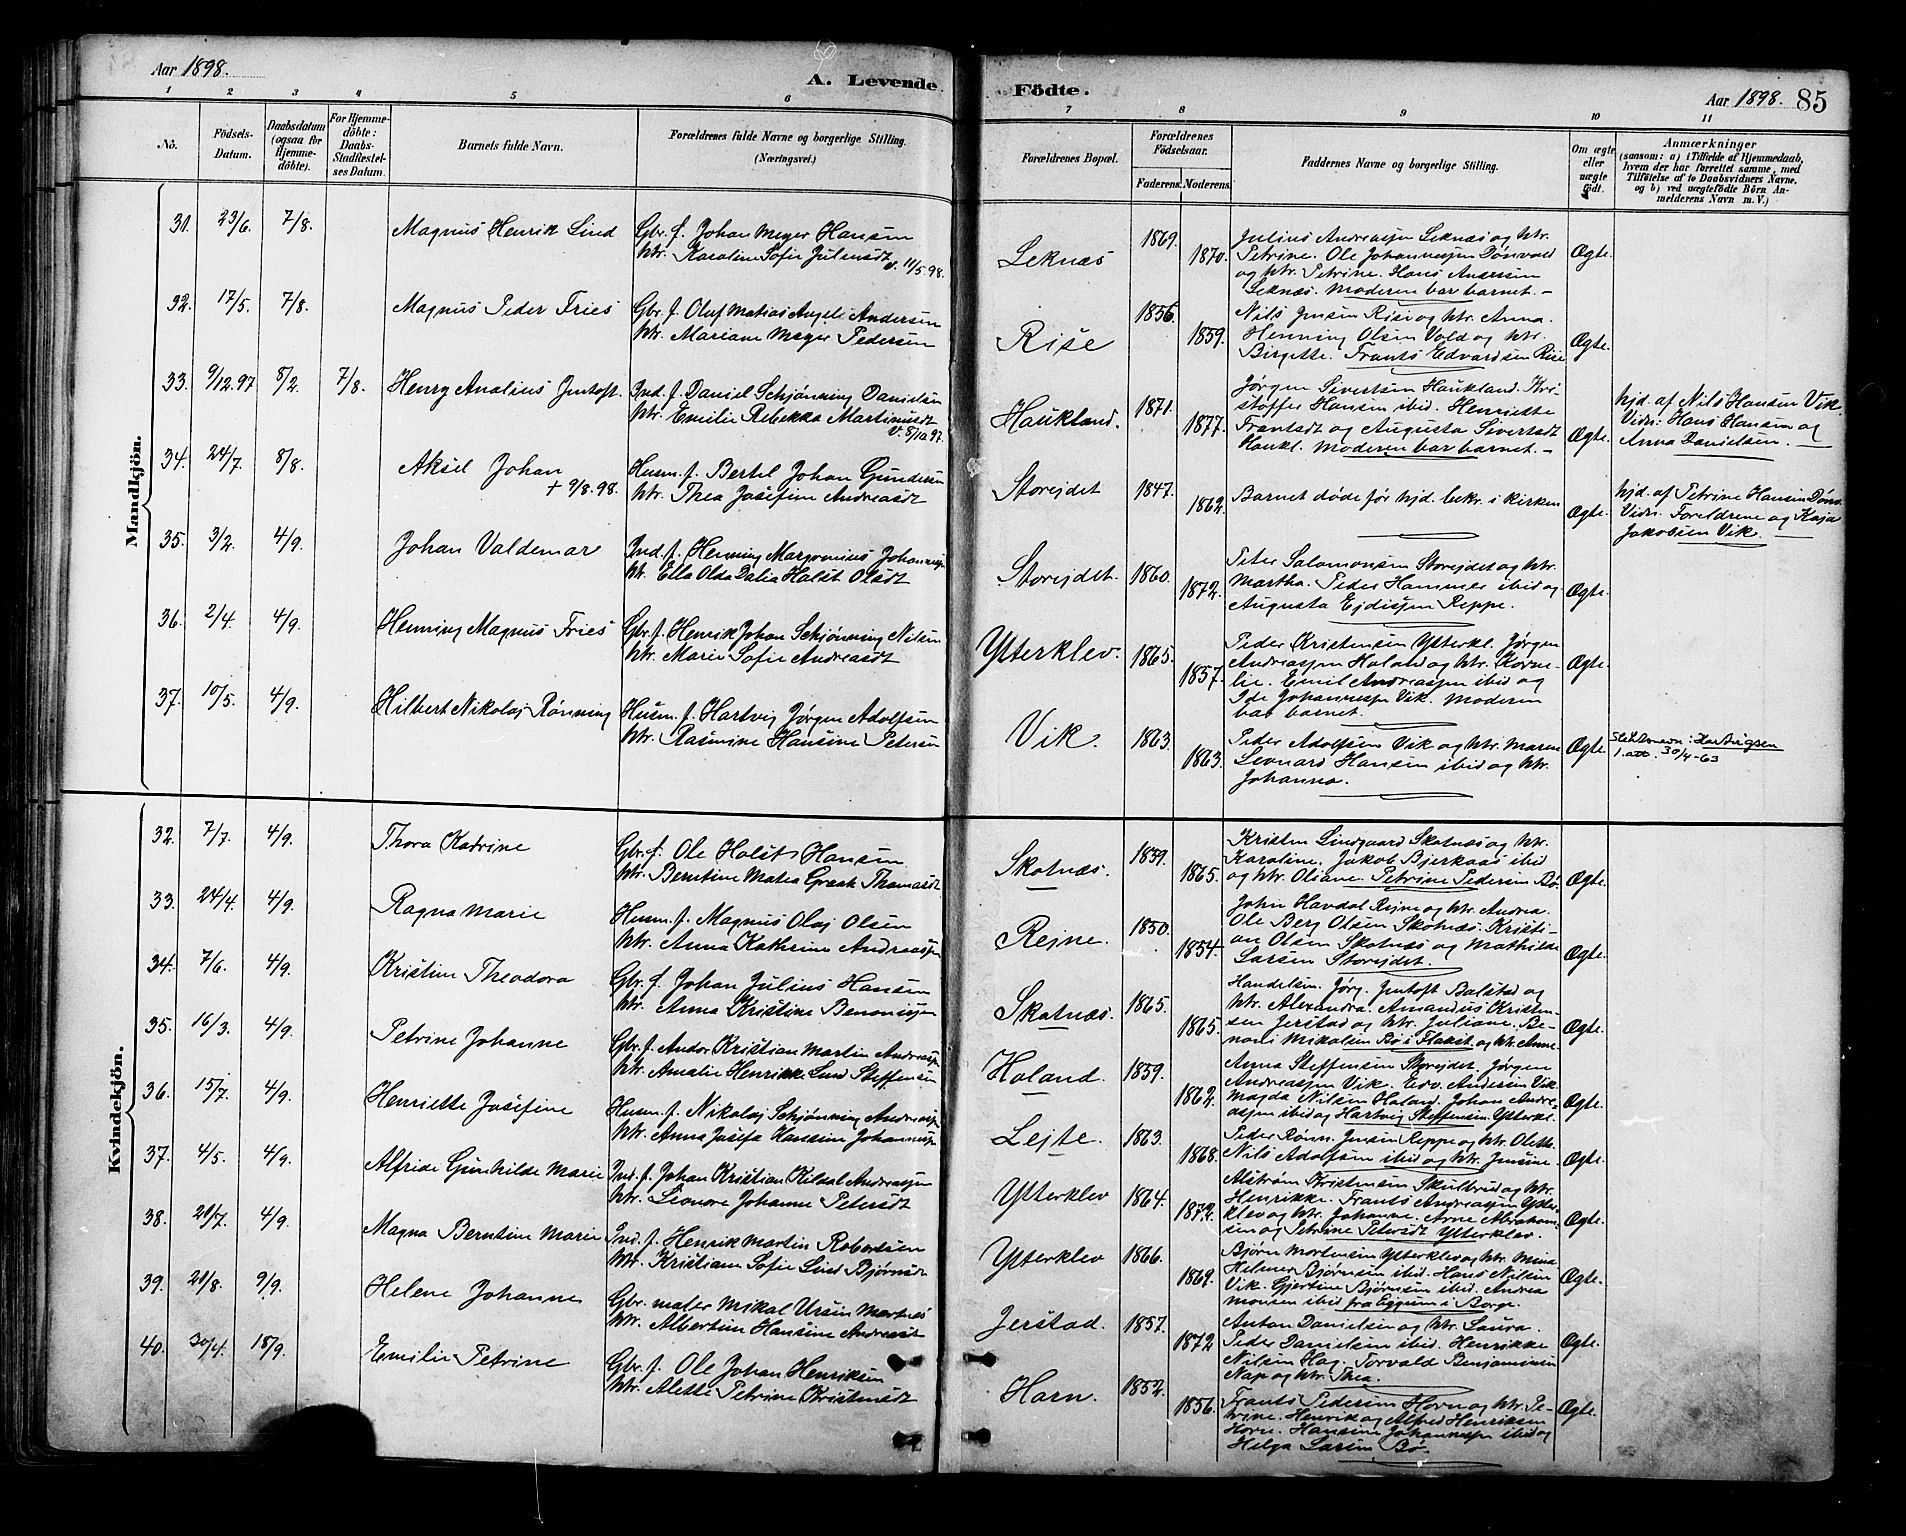 Aar 1898.
A. Levende
Födte.
Aar 1898. 85
1 2 3 4 5 6 7 8 9 10 11
No.
Födsels-Datum.
Daabsdatum (ogsaa for Hjemme-döbte).
For Hjemme-döbte: Daabs-Stadfestel-ses Datum.
Barnets fulde Navn.
Forældrenes fulde Navne og borgerlige Stilling. (Næringsvei.)
Forældrenes Bopæl.
Forældrenes Födselsaar.
Faderens. Moderens.
Faddernes Navne og borgerlige Stilling.
Om ægte eller uægte födt.
Anmærkninger
(saasom: a) i Tilfælde af Hjemmedaab,
hvem der har forrettet samme, med
Tilföielse af to Daabsvidners Navne,
og b) ved uægtefödte Börn An-
melderens Navn m. V.)
Mandkjön.
31. 23/6. 7/8. Magnus Henrik Lind
Gbr. f. Johan Meyer Hansen
htr. Karoline Sofie Julensdt v. 11/5.98.
Leknæs 1869. 1870.
Julius Andreassen Leknæs og htr.
Petrine. Ole Johannessen Dønvold
og htr. Petrine. Hans Andersen
Leknæs. Moderen bar barnet. –
Ægte.
32. 17/5. 7/8. Magnus Peder Fries
Gbr. f. Oluf Matias Angel Andersen
htr. Mariane Meyer Pedersen
Rise 1856. 1859.
Nils Jensen Rise og htr. Anna.
Henning Olsen Vold og htr.
Birgette. Frants Edvardsen Rise
Ægte.
33. 9/12.97 8/2. 7/8. Henry Analius Jentoft.
Ind. f. Daniel Schjønning Danielsen
htr. Emilie Rebekka Martinusdt v. 8/10 97.
Haukland. 1871. 1877.
Jørgen Sivertsen Haukland. Kri-
stoffer Hansen ibid. Henriette
Frantsdt og Augusta Sivertsdt
Haukl. Moderen bar barnet. –
Ægte.
hjd. af Nils Hansen Vik.
Vidn: Hans Hansen og
Anna Danielsen.
34. 24/7. 8/8. Aksel Johan
+ 9/8.98.
Husm. f. Bertel Johan Gundersen
htr. Thea Josefine Andreasdt
Storejdet 1847. 1862.
Barnet døde før hjd. bekr. i kirken
Ægte.
hjd. af Petrine Hansen Dønv.
Vidn. Foreldrene og Kaja
Jakobsen Vik.
35. 3/2. 4/9. Johan Valdemar
Ind. f. Henning Margonius Johannessen
htr. Ella Olda Dalia Holst Olsdt
Storejdet. 1860. 1872.
Peter Salomonsen Storejdet og htr.
Martha. Peder Hammer ibid og
Augusta Ejdissen Reppe.
Ægte.
36. 2/4. 4/9. Henning Magnus Fries
Gbr. f. Henrik Johan Schjønning Nilsen
htr. Marie Sofie Andreasdt
Ytterklev. 1865. 1857.
Peder Kristensen Ytterkl. Jørgen
Andreassen Holand og htr. Korne-
lie. Emil Andreassen ibid og
Ide Johannessen Vik. Moderen
bar barnet.
Ægte.
37. 10/5. 4/9. Hilbert Nikolaj Rønning
Husm. f. Hartvig Jørgen Adolfsen
htr. Rasmine Hansine Petersen
Vik. 1863. 1863.
Peder Adolfsen Vik og htr. Maren
Leonard Hansen ibid og htr.
Johanna.
Ægte.
Slektsnavn: Hartvigsen
l. att. 30/4-63
Kvindekjön.
32. 7/7. 4/9. Thora Katrine
Gbr. f. Ole Holst Hansen
htr. Berntine Matea Graak Thomasdt
Skotnæs. 1859. 1865.
Kristen Lindgaard Skotnæs og htr.
Karoline. Jakob Bjerkaas ibid
og htr. Oliane. Petrine Pedersen Bø.
Ægte.
33. 24/4. 4/9. Ragna Marie
Husm. f. Magnus Olaj Olsen
htr. Anna Kathrine Andreassen
Rejne. 1850. 1854.
John Havdal Rejne og htr. Andrea.
Ole Berg Olsen Skotnæs. Kristi-
an Olsen Skotnæs og Mathilde
Larsen Storejdet.
Ægte.
34. 7/6. 4/9. Kristine Theodora
Gbr. f. Johan Julius Hansen
htr. Anna Kristine Benonisen
Skotnæs. 1865. 1865.
Handelsm. Jørg. Jentoft Balstad og
htr. Alexandra. Amandus Kristen-
sen Jerstad og htr. Juliane. Be-
noni Mikalsen Bø i Flakst. og htr. Anne
Ægte.
35. 16/3. 4/9. Petrine Johanne
Gbr. f. Andor Kristian Martin Andreassen
htr. Amalie Henrikke Lund Steffensen
Holand. 1859. 1862.
Anna Steffensen Storejdet. Jørgen
Andreassen Vik. Edv. Andersen Vik.
Magda Nilsen Holand. Johan Andre-
assen ibid og Hartvig Steffensen Ytterkl.
Ægte.
36. 15/7. 4/9. Henriette Josefine
Husm. f. Nikolaj Schjønning Andreassen
htr. Anna Josefa Hansine Johannessen
Lejte. 1863. 1868.
Peder Rønn. Jensen Reppe og htr. Olette.
Nils Adolfsen ibid og htr. Jensine.
Ægte.
37. 4/5. 4/9. Alfride Gunhilde Marie
Ind. f. Johan Kristian Kildal Andreassen
htr. Leonore Johanne Petersdt
Ytterklev 1864. 1872.
Alstrøm Kristensen Skulbrud og htr.
Henrikke. Frants Andreassen Ytter-
klev og htr. Johanne. Arne Abraham-
sen og Petrine Petersdt Ytterklev.
Ægte.
38. 20/7. 4/9. Magna Berntine Marie
Ind. f. Henrik Martin Robertsen
htr. Kristiane Sofie Lind Bjørnsdt
Ytterklev 1866. 1869.
Bjørn Mortensen Ytterklev og htr. Mina
Helmer Bjørnsen ibid. Hans Nilsen
Vik. Gjertine Bjørnsen ibid. Andrea
Monsen ibid fra Eggum i Borge.
Ægte.
39. 20/8. 9/9. Helene Johanne
Gbr. maler Mikal Ursin Mortnæs
htr. Albertine Hansine Andreasdt
Jerstad. 1857. 1872
Anton Danielsen og htr. Laura.
Peder Danielsen ibid. Henrikke
Nilsen Hag. Torvald Benjaminsen
Nap og htr. Thea.
Ægte.
40. 30/4. 18/9. Emilie Petrine
Gbr. f. Ole Johan Henriksen
htr. Alette Petrine Kristensdt
Horn. 1852. 1856.
Frants Pedersen Horn og htr. Pe-
trine. Henrik og Alfred Henriksen
Horn. Hansine Johannessen ibid og
Helga Larsen Bø.
Ægte.